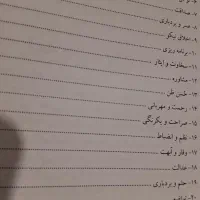 ۷- صداقت
۸- صبر و بردباری
۹- اخلاق نیکو
۱۰- برنامه ریزی
۱۱- سخاوت و ایثار
۱۲- مشاوره
۱۳- حسن ظن
۱۴- رحمت و مهربانی
۱۵- صراحت و یکرنگی
۱۶- نظم و انضباط
۱۷- وقار و ابهت
۱۸- عدالت
۱۹- حلم و بردباری
۲۰-